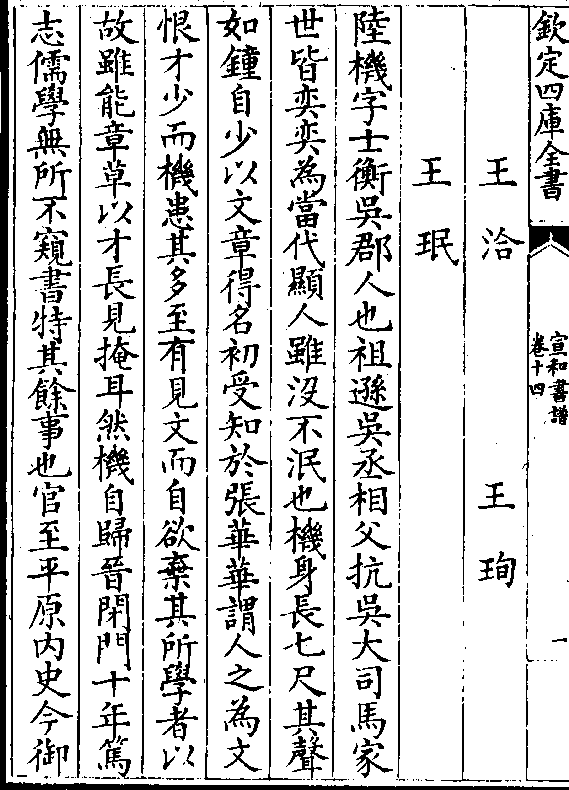 欽定四庫全書
宣和書譜
卷十四
一
王洽
王珣
王珉
陸機字士衡吳郡人也祖遜吳丞相父抗吳大司馬家
世皆奕奕為當代顯人雖沒不泯也機身長七尺其聲
如鐘自少以文章得名初受知於張華華謂人之為文
恨才少而機患其多至有見文而自欲棄其所學者以
故雖能章草以才長見掩耳然機自歸晉閉門十年篤
志儒學無所不窺書特其餘事也官至平原內史今御